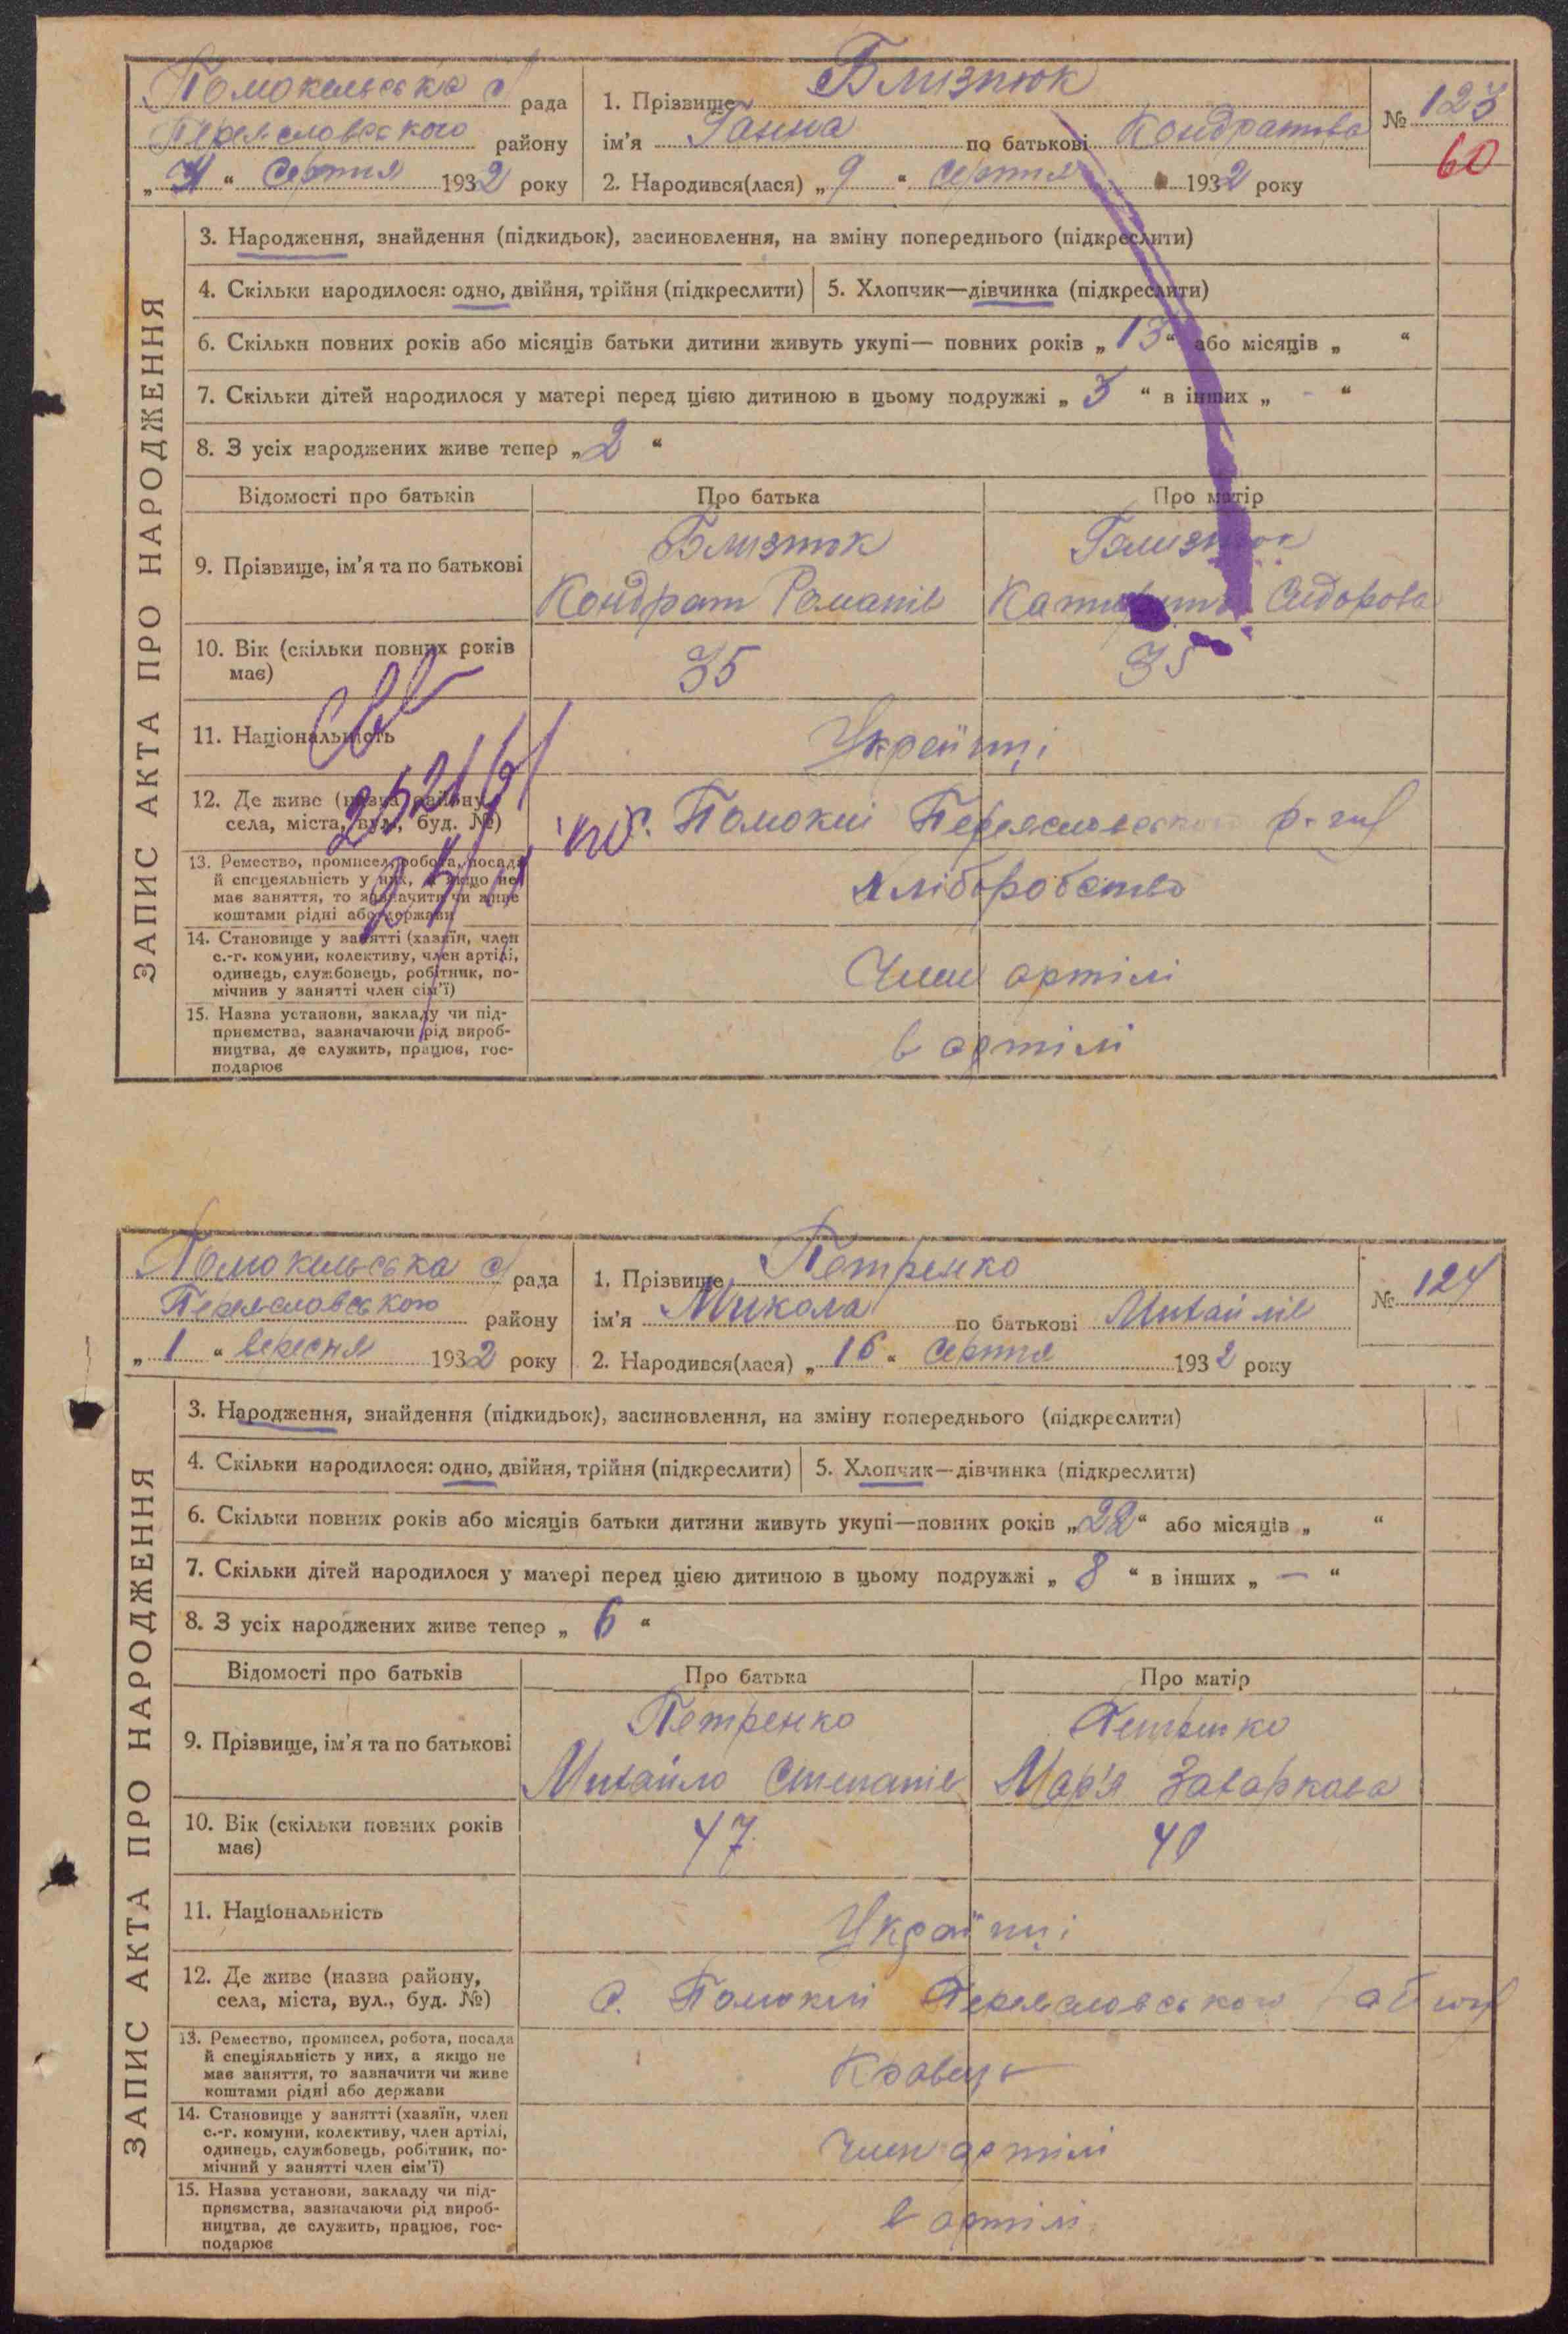 Помокельська с/рада 1. Прізвище Близнюк № 123
Переяславського району ім'я Ганна по батькові Кондратова 60
„ “ Серпня 1932 року 2. Народився(лася) „ 9 “ серпня 1932 року
ЗАПИС АКТА ПРО НАРОДЖЕННЯ
3. Народження, знайдення (підкидьок), засиновлення, на зміну попереднього (підкреслити)
4. Скільки народилося: одно, двійня, трійня (підкреслити) 5. Хлопчик—дівчинка (підкреслити)
6. Скільки повних років або місяців батьки дитини живуть укупі— повних років „ 13 “ або місяців „ “
7. Скільки дітей народилося у матері перед цією дитиною в цьому подружжі „ 3 “ в інших „ - “
8. З усіх народжених живе тепер „ 2 “
Відомості про батьків Про батька Про матір
9. Прізвище, ім'я та по батькові
Близнюк Близнюк
Кондрат Романів Катерина Сидорова
10. Вік (скільки повних років має) 35 35
11. Національність Українці
12. Де живе (назва району, села, міста, вул., буд. №) с. Помоклі Переяславського р-ну
13. Ремество, промисел, робота, посада
й спецеяльність у них, а якщо не
має заняття, то зазначити чи живе
коштами рідні або держави
хліборобство
14. Становище у занятті (хазяїн, член
с.-г. комуни, колективу, член артілі,
одинець, службовець, робітник, по-
мічнив у занятті член сім'ї)
Член артілі
15. Назва установи, закладу чи під-
приємства, зазначаючи рід вироб-
ництва, де служить, працює, гос-
подарює
в артілі
Помокельська с/рада 1. Прізвище Петренко № 124
Переяславського району ім'я Микола по батькові Михайлів
„ 1 “ вересня 1932 року 2. Народився(лася) „ 16 “ Серпня 1932 року
ЗАПИС АКТА ПРО НАРОДЖЕННЯ
3. Народження, знайдення (підкидьок), засиновлення, на зміну попереднього (підкреслити)
4. Скільки народилося: одно, двійня, трійня (підкреслити) 5. Хлопчик—дівчинка (підкреслити)
6. Скільки повних років або місяців батьки дитини живуть укупі—повних років „ 22 “ або місяців „ “
7. Скільки дітей народилося у матері перед цією дитиною в цьому подружжі „ 8 “ в інших „ — “
8. З усіх народжених живе тепер „ 6 “
Відомості про батьків Про батька Про матір
9. Прізвище, ім'я та по батькові
Петренко Петренко
Михайло Степанів Мар'я Захаркова
10. Вік (скільки повних років має) 47 40
11. Національність Українці
12. Де живе (назва району, села, міста, вул., буд. №) с. Помоклі Переяславського району
13. Ремество, промисел, робота, посада
й спеціяльність у них, а якщо не
має заняття, то зазначити чи живе
коштами рідні або держави
Кравець
14. Становище у занятті (хазяїн, член
с.-г. комуни, колективу, член артілі,
одинець, службовець, робітник, по-
мічний у занятті член сім'ї)
Член артілі
15. Назва установи, закладу чи під-
приємства, зазначаючи рід вироб-
ництва, де служить, працює, гос-
подарює
в артілі